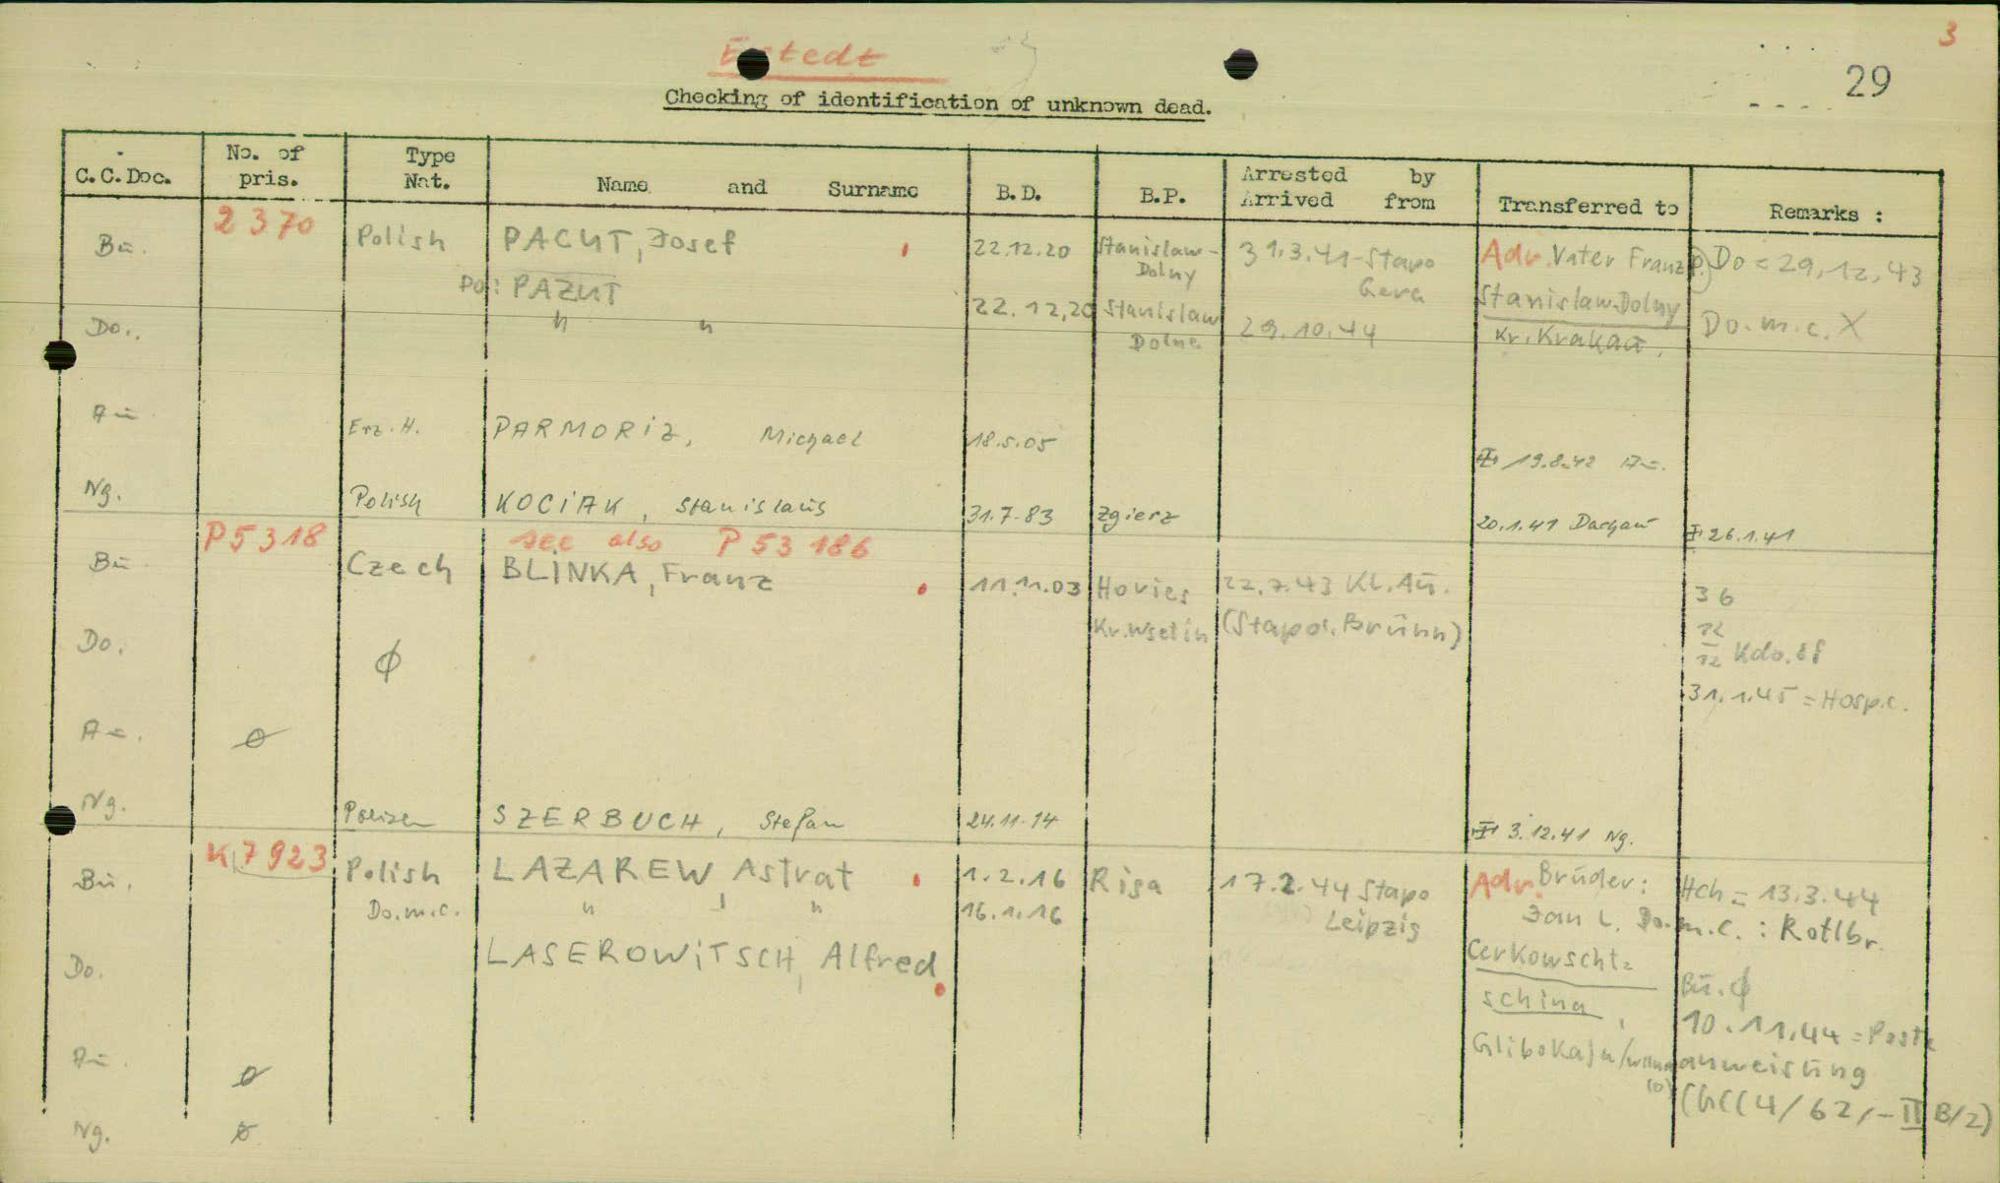 3
29
Checking of identification of unknown dead.
C.C.Doc. No. of pris. Type Nat. Name and Surname B.D. B.P. Arrested by Arrived from Transferred to Remarks :
2370
Bu. Polish PACUT, Josef 22.12.20 Stanislaw-Dolny 31.3.41-Stapo Gera Adr. Vater Franz P. Do = 29.12.43
Do: PAZUT 22.12.20 Stanislaw Dolne 29.10.44 Stanislaw-Dolny Do.m.c. X
Do. " " Kr. Krakau.
Au Erz.H. PARMORIZ, Michael 18.5.05 19.8.42 Au.
Ng. Polish KOCIAK, Stanislaus 31.7.83 Zgierz 20.1.41 Dachau 26.1.41
P5318 see also P 53186
Bu Czech BLINKA, Franz 11.11.03 Hovies 22.7.43 Kl. Au. 36
Kr. Wsetin (Stapo. Brünn) 12
Do. ϕ 12 Kdo.
31.1.45 = Hosp.c.
Au. ø
Ng. SZERBUCH, Stefan 24.11.14 3.12.41 Ng.
K.7923
Bu. Polish LAZAREW, Astrat 1.2.16 Riga 17.2.44 Stapo Leipzig Adr. Brüder: Hch = 13.3.44
Do.m.c. " " 16.1.16 Jan L. Do.m.c. : Rotlbr.
Do. LASEROWITSCH, Alfred Cerkowscht=
schina, Bu. ϕ
10.11.44 = Post=
Au. ø Glibokaja anweisung
Ng. ø (GCC4/62/-II B/2)